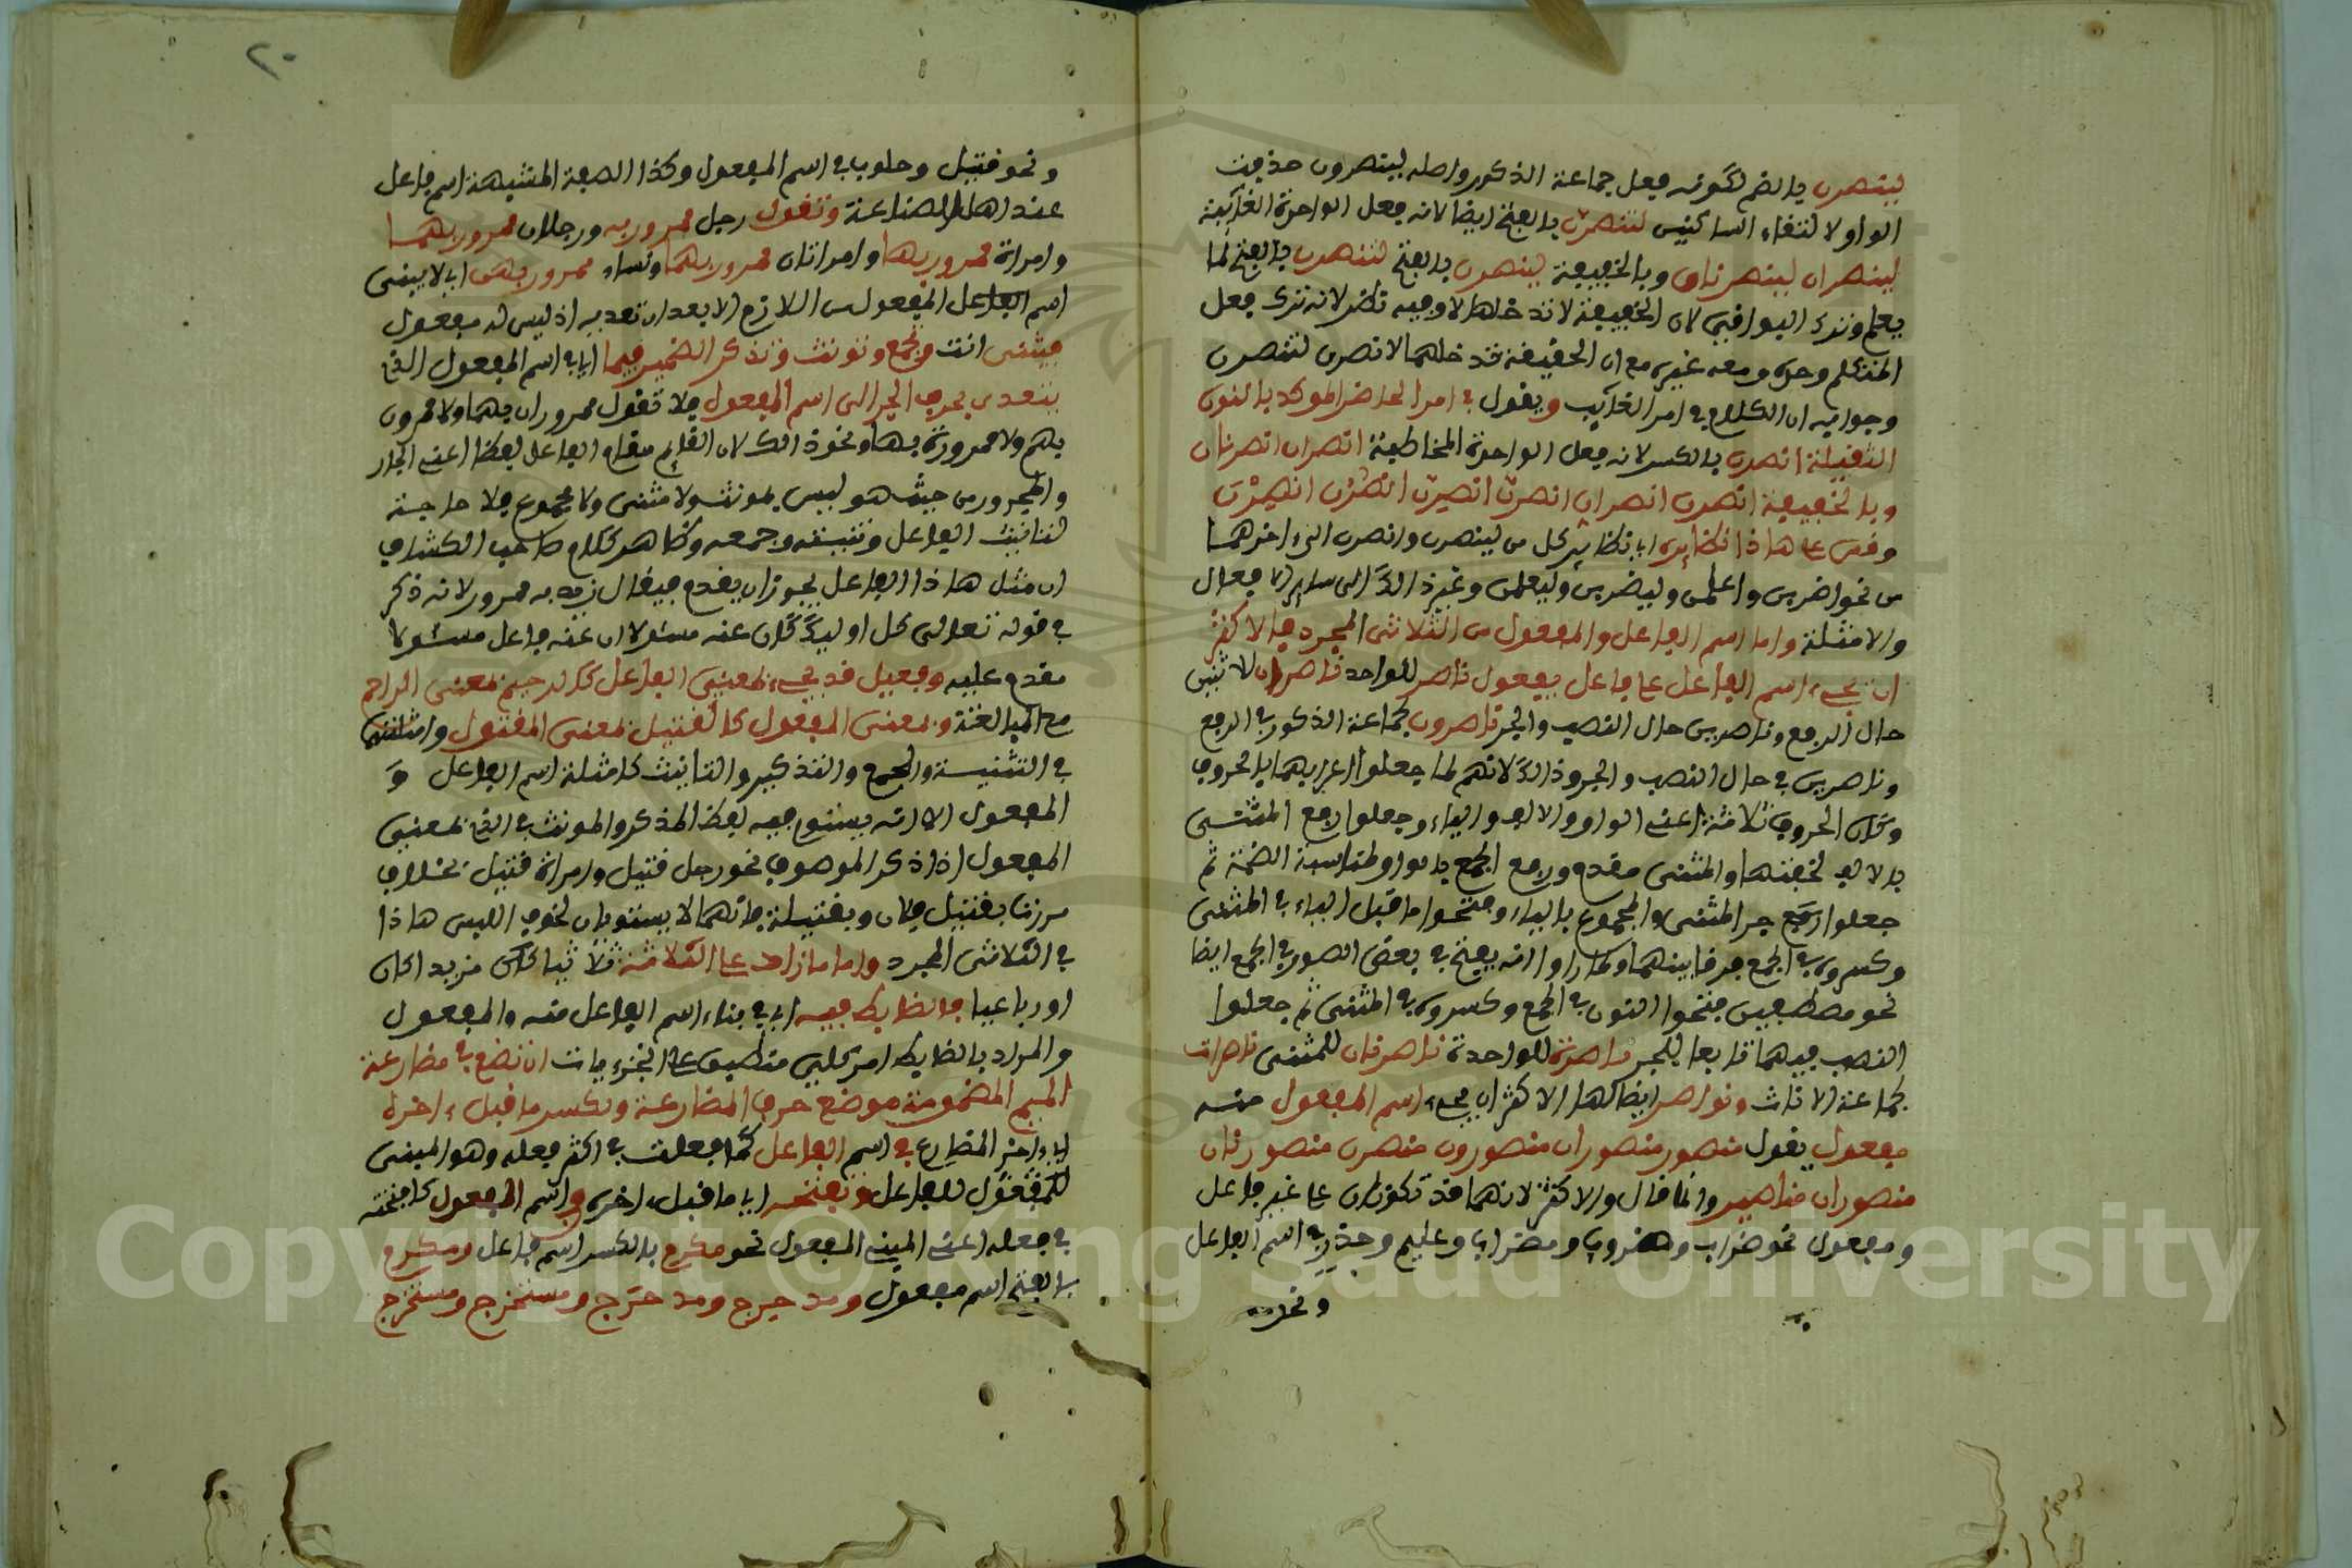 لينصرن بالضم لكونه فعل جماعة الذكور واصله لينصرون حذفت
الواو لالتقاء الساكنين لتنصرن بالفتح ايضا لانه فعل الواحدة الغائبة
لينصران لينصرنان وبالخفيفة لينصرن بالفتح لتنصرن بالفتح لما
يعلم وترك البواقي لان الخفيفة لا تدخلها وفيه نظر لانه ترك فعل
المتكلم وحده ومعه غيره مع ان الخفيفة قد خلهما لانصرن لننصرن
وجوابه ان الكلام في امر الغائب ويقول في امر الحاضر الموكد بالنون
الثقيلة انصرن بالكسر لانه فعل الواحدة المخاطبة انصران انصرنان
وبالخفيفة انصرن انصران انصرن انصرن انصرن انصرن
وقس على هاذا نظايره اي نظاير كل من لينصرن وانصرن الى اخرهما
من نحو اضربن واعلمن وليضربن وليعلمن وغير ذالك الى ساير الافعال
والامثلة واما اسم الفاعل والمفعول من الثلاثي المجرد فالاكثر
ان يجيء اسم الفاعل على فاعل يقول ناصر للواحد ناصران لاثنين
حال الرفع وناصرين حال النصب والجر ناصرون لجماعة الذكور في الرفع
وناصرين في حال النصب والجر وذالك لانهم لما جعلوا اعرابهما بالحروف
وكان الحروف ثلاثة اعني الواو والالف والياء وجعلوا رفع المثنى
بالالف لخفتها والمثنى مقدم ورفع الجمع بالواو لمناسبة الضمة ثم
جعلوا جر المثنى والمجموع بالياء وفتحوا ما قبل الياء في المثنى
وكسروه في الجمع فرقا بينهما ولما راوا انه يفتح في بعض الصور في الجمع ايضا
نحو مصطفين فتحوا النون في الجمع وكسروه في المثنى ثم جعلوا
النصب فيهما تابعا للجر ناصرة للواحدة ناصرتان للمثنى ناصرات
لجماعة الاناث ونواصر ايضا لها والاكثر ان يجيء اسم المفعول منه
مفعول يقول منصور منصوران منصورون منصورة منصورتان
منصورات مناصير وانما قال والاكثر لانهما قد تكونان على غير فاعل
ومفعول نحو ضراب وضروب ومضراب وعليم وحذر في اسم الفاعل
ونحو
٢٠
ونحو قتيل وحلوب في اسم المفعول وكذا الصفة المشبهة اسم فاعل
عند اهل الصناعة وتقول رجل ممرور به ورجلان ممرور بهما
وامراة ممرور بها وامراتان ممرور بهما ونساء ممرور بهن اي لا يبنى
اسم المفعول من اللازم الا بعد ان تعديه اذ ليس له مفعول
فتثنى انت وتجمع وتونث وتذكر الضمير فيما اي في اسم المفعول الذي
يتعدى بحرف الجر الى اسم المفعول فلا تقول ممروران بهما ولا ممرورون
بهم ولا ممرورة بها ونحو ذالك لان القايم مقام الفاعل لفظا اعني الجار
والمجرور من حيث هو ليس بمونث ولا مثنى ولا مجموع فلا حاجة
لتانيث الفاعل وتثنيته وجمعه وظاهر كلام صاحب الكشاف
ان مثل هاذا الفاعل يجوز ان يقدم فيقال زيد به ممرور لانه ذكر
في قوله تعالى كل اوليك كان عنه مسئولا ان عنه فاعل مسئولا
مقدم عليه وفعيل قد يجيء بمعنى الفاعل كالرحيم بمعنى الراحم
مع المبالغة وبمعنى المفعول كالقتيل بمعنى المقتول وامثلته
في التثنية والجمع والتذكير والتانيث كامثلة اسم الفاعل و
المفعول الا انه يستوي فيه لفظ المذكر والمونث في الذي بمعنى
المفعول اذا ذكر الموصوف نحو رجل قتيل وامراة قتيل بخلاف
مررت بقتيل فلان وبقتيلة فانهما لا يستويان لخوف اللبس هاذا
في الثلاثي المجرد واما ما زاد على الثلاثة ثلاثيا كان مزيدا كان
او رباعيا فالضابط فيه اي في بناء اسم الفاعل منه والمفعول
والمراد بالضابط امر كلي منطبق على الجزءيات ان تضع في مضارعة
الميم المضمومة موضع حرف المضارعة وتكسر ما قبل ءاخره
اي ءاخر المضارع في اسم الفاعل كما فعلت في اكثر فعله وهو المبنى
للفاعل وتفتحه اي ما قبل ءاخره في اسم المفعول كما فتحته
في فعله اعني المبني للمفعول نحو مكرم بالكسر اسم فاعل ومكرم
بالفتح اسم مفعول ومدحرج ومدحرج ومستخرج ومستخرج
Copyright © King Saud University